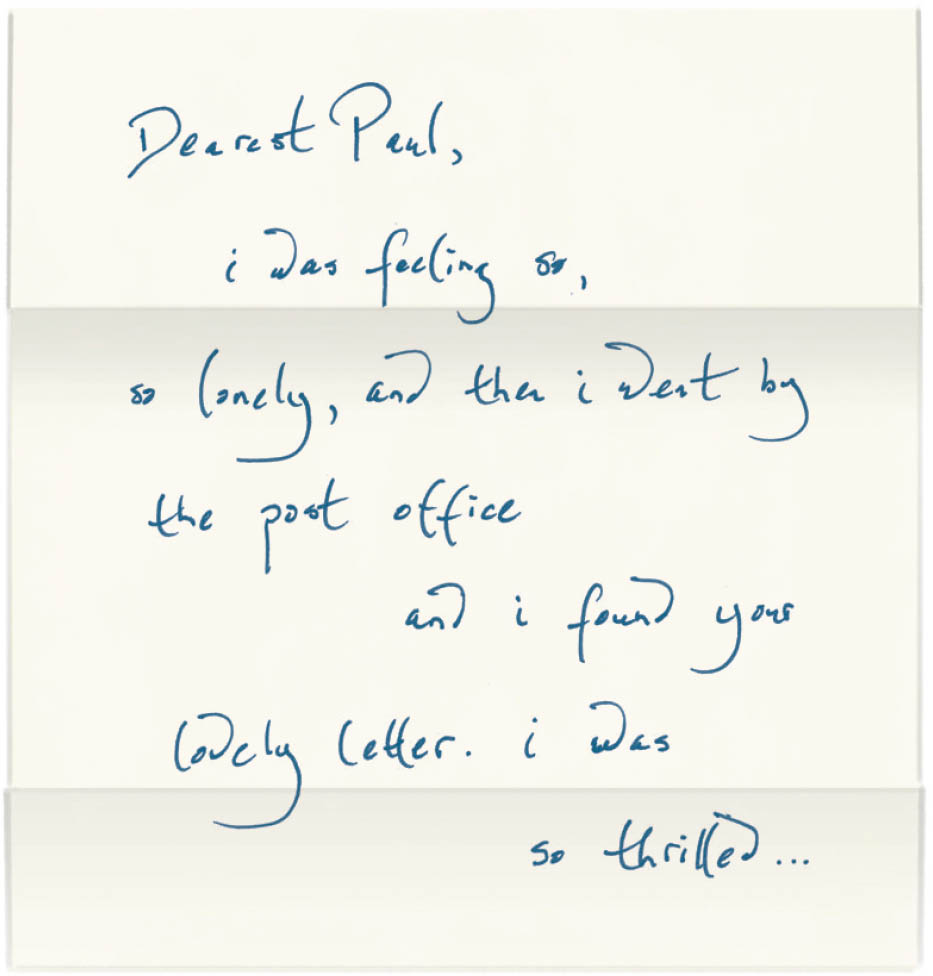 Dearest Paul,
i was feeling so,
so lonely, and then i went by
the post office
and i found your
lovely letter. i was
so thrilled...